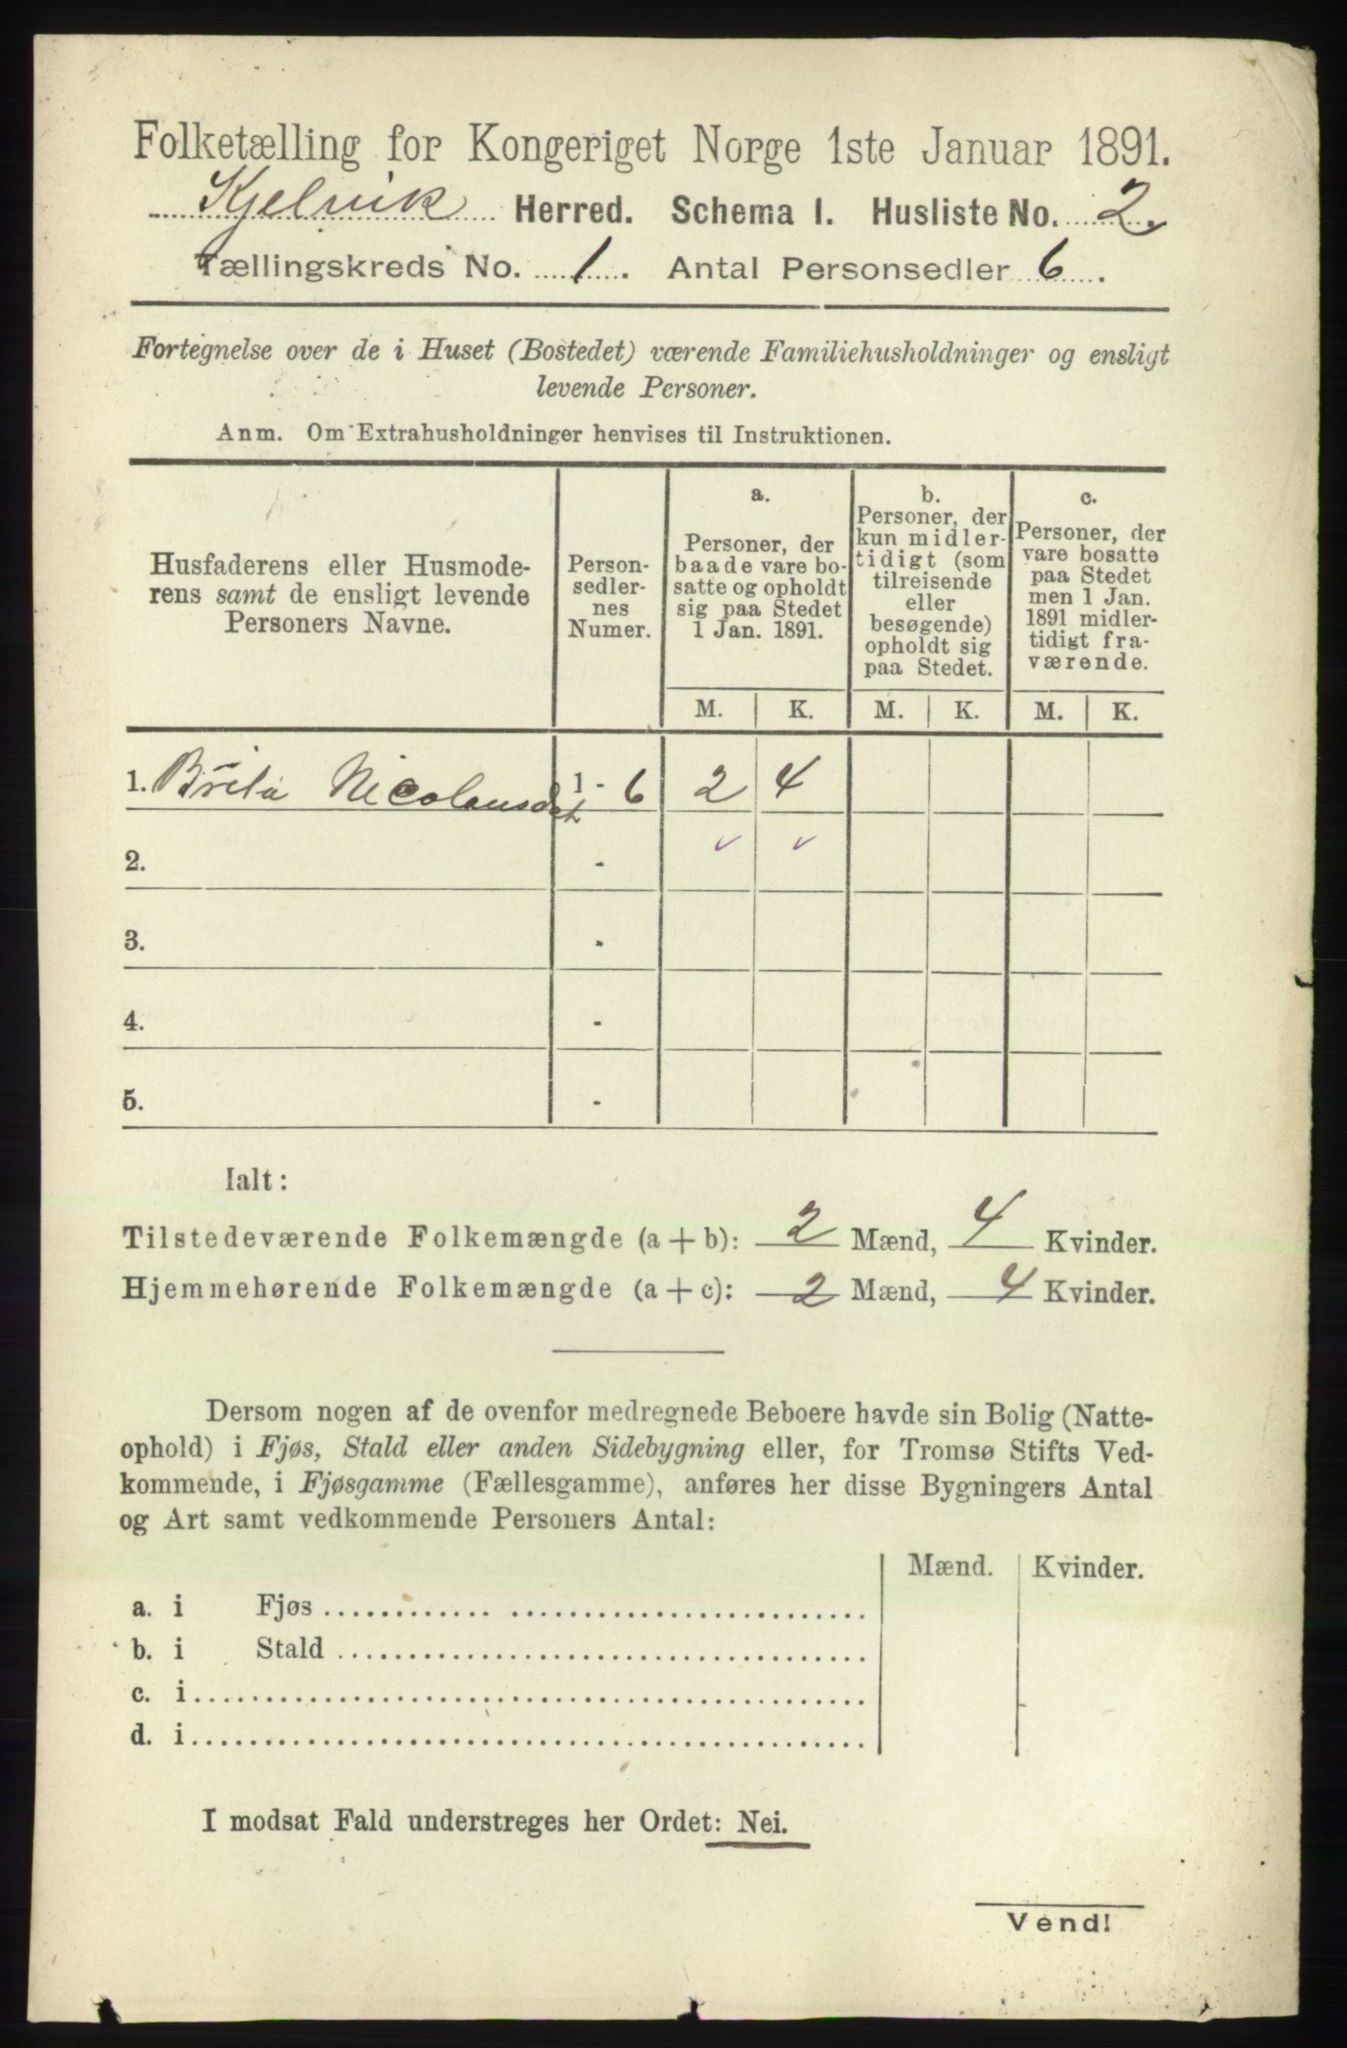 Folketælling for Kongeriget Norge 1ste Januar 1891.
Kjelvik Herred. Schema I. Husliste No. 2.
Tællingskreds No. 1. Antal Personsedler 6.
Fortegnelse over de i Huset (Bostedet) værende Familiehusholdninger og ensligt
levende Personer.
Anm. Om Extrahusholdninger henvises til Instruktionen.
Husfaderens eller Husmode-
rens samt de ensligt levende
Personers Navne.
Person-
sedler-
nes
Numer.
a.
Personer, der
baade vare bo-
satte og opholdt
sig paa Stedet
1 Jan. 1891.
b.
Personer, der
kun midler-
tidigt (som
tilreisende
eller
besøgende)
opholdt sig
paa Stedet.
c.
Personer, der
vare bosatte
paa Stedet
men 1 Jan.
1891 midler-
tidigt fra-
værende.
M. K. M. K. M. K.
1. Brita Nicolausdat 1 - 6 2 4
2. -
3. -
4. -
5. -
Ialt:
Tilstedeværende Folkemængde (a + b): 2 Mænd, 4 Kvinder.
Hjemmehørende Folkemængde (a + c): 2 Mænd, 4 Kvinder.
Dersom nogen af de ovenfor medregnede Beboere havde sin Bolig (Natte-
ophold) i Fjøs, Stald eller anden Sidebygning eller, for Tromsø Stifts Ved-
kommende, i Fjøsgamme (Fællesgamme), anføres her disse Bygningers Antal
og Art samt vedkommende Personers Antal:
Mænd. Kvinder.
a. i Fjøs
b. i Stald
c. i
d. i
I modsat Fald understreges her Ordet: Nei.
Vend!